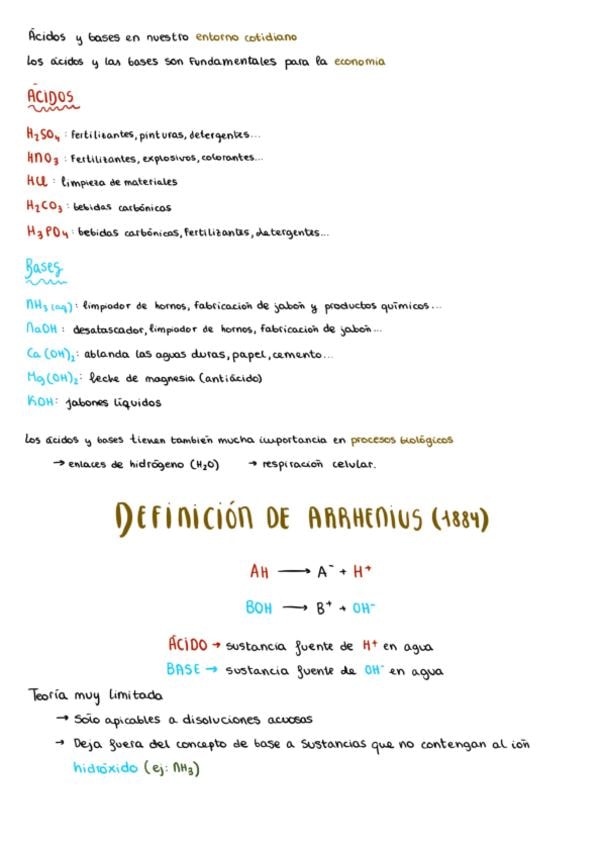 Ácidos y bases en nuestro entorno cotidiano
Los ácidos y las bases son fundamentales para la economía
ÁCIDOS
H₂SO₄ : fertilizantes, pinturas, detergentes...
HNO₃ : Fertilizantes, explosivos, colorantes...
HCl : limpieza de materiales
H₂CO₃ : bebidas carbónicas
H₃PO₄ : bebidas carbónicas, fertilizantes, detergentes...
Bases
NH₃ (aq) : limpiador de hornos, fabricación de jabón y productos químicos...
NaOH : desatascador, limpiador de hornos, fabricación de jabón...
Ca(OH)₂ : ablanda las aguas duras, papel, cemento...
Mg(OH)₂ : leche de magnesia (antiácido)
KOH : jabones líquidos
Los ácidos y bases tienen también mucha importancia en procesos biológicos
→ enlaces de hidrógeno (H₂O) → respiración celular.
DEFINICIÓN DE ARRHENIUS (1884)
AH ⟶ A⁻ + H⁺
BOH ⟶ B⁺ + OH⁻
ÁCIDO → sustancia fuente de H⁺ en agua
BASE → sustancia fuente de OH⁻ en agua
Teoría muy limitada
→ Sólo apicables a disoluciones acuosas
→ Deja fuera del concepto de base a sustancias que no contengan al ión
hidróxido (ej: NH₃)